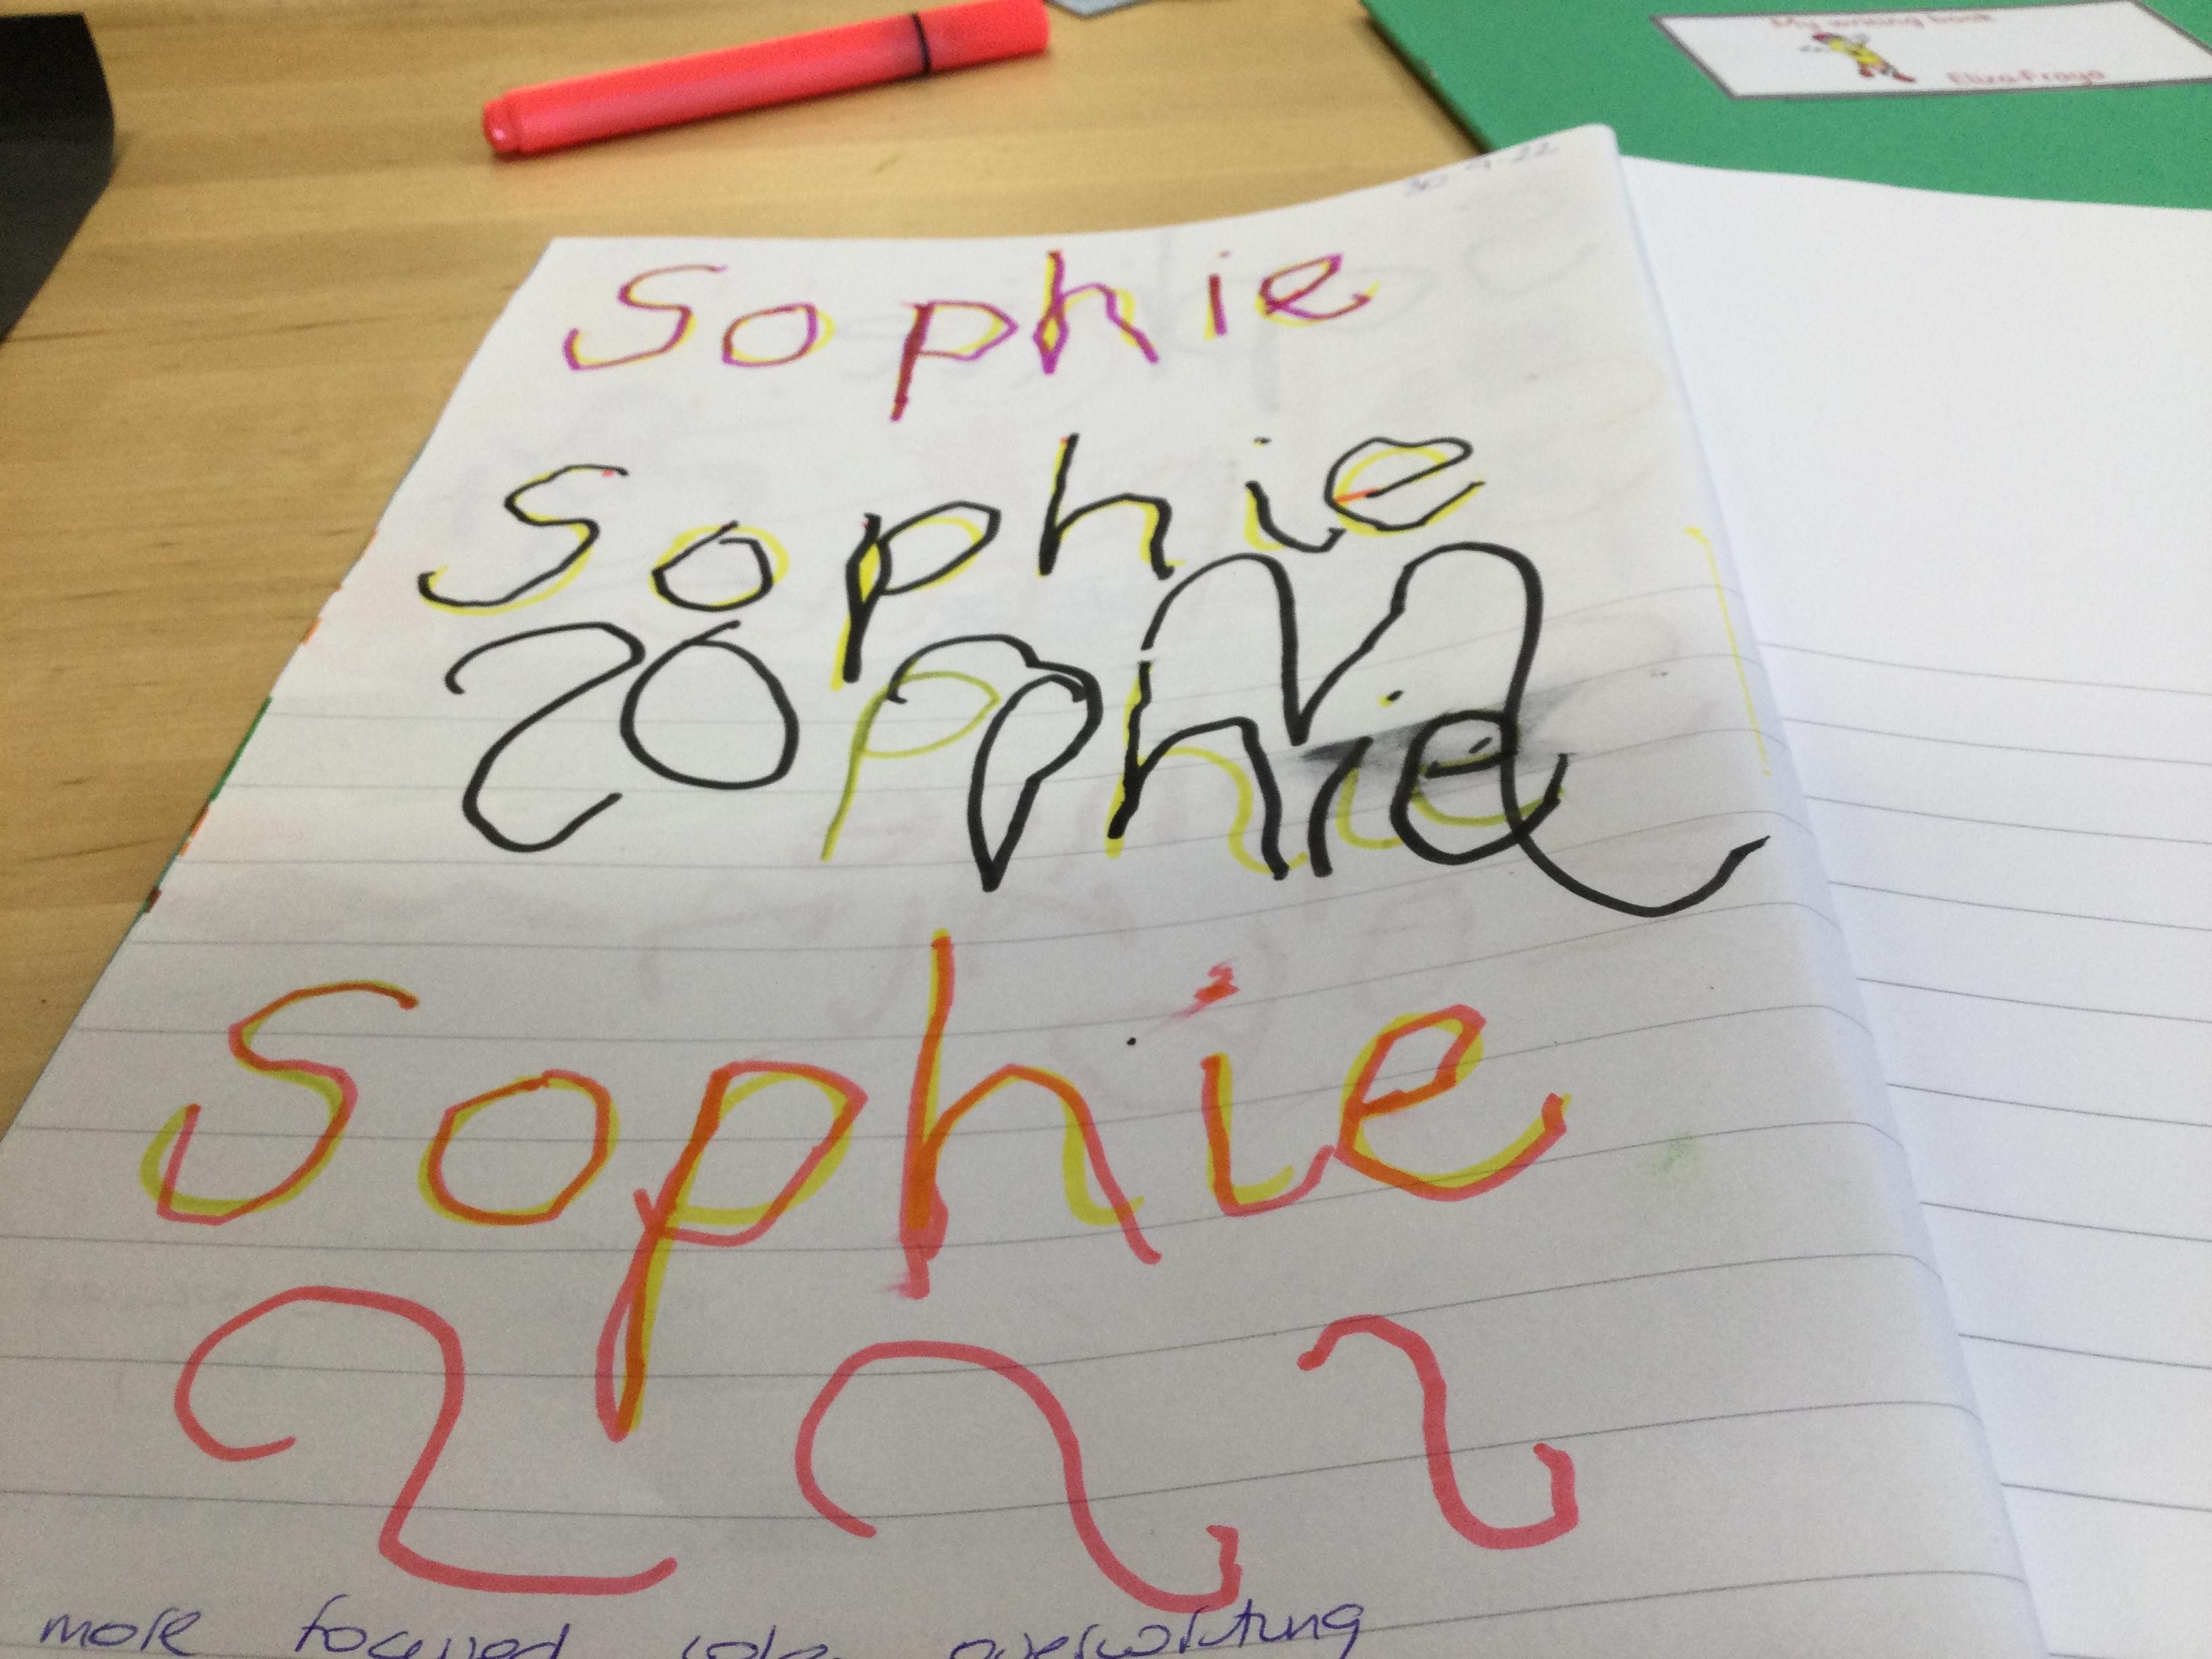 My writing book
30.9.22
Sophie
Sophie
Sophie
Sophie
more focused overwriting